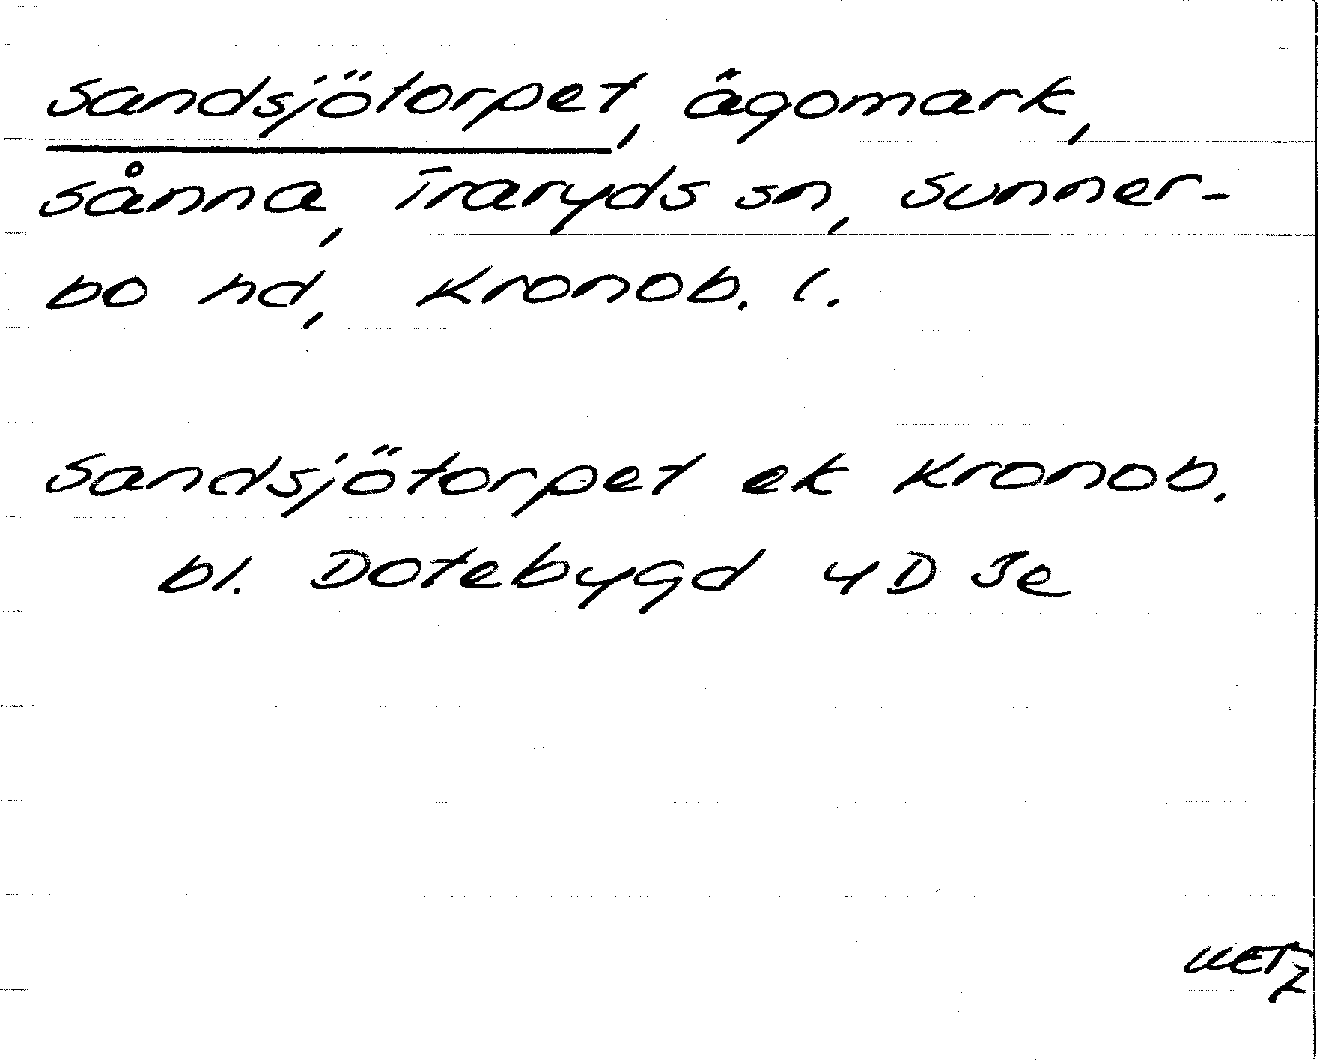 Sandsjötorpet, ägomark,
Sånna, Traryds sn, Sunner-
bo hd, Kronob. l.
Sandsjötorpet ek Kronob.
bl. Dotebygd 4D 3e